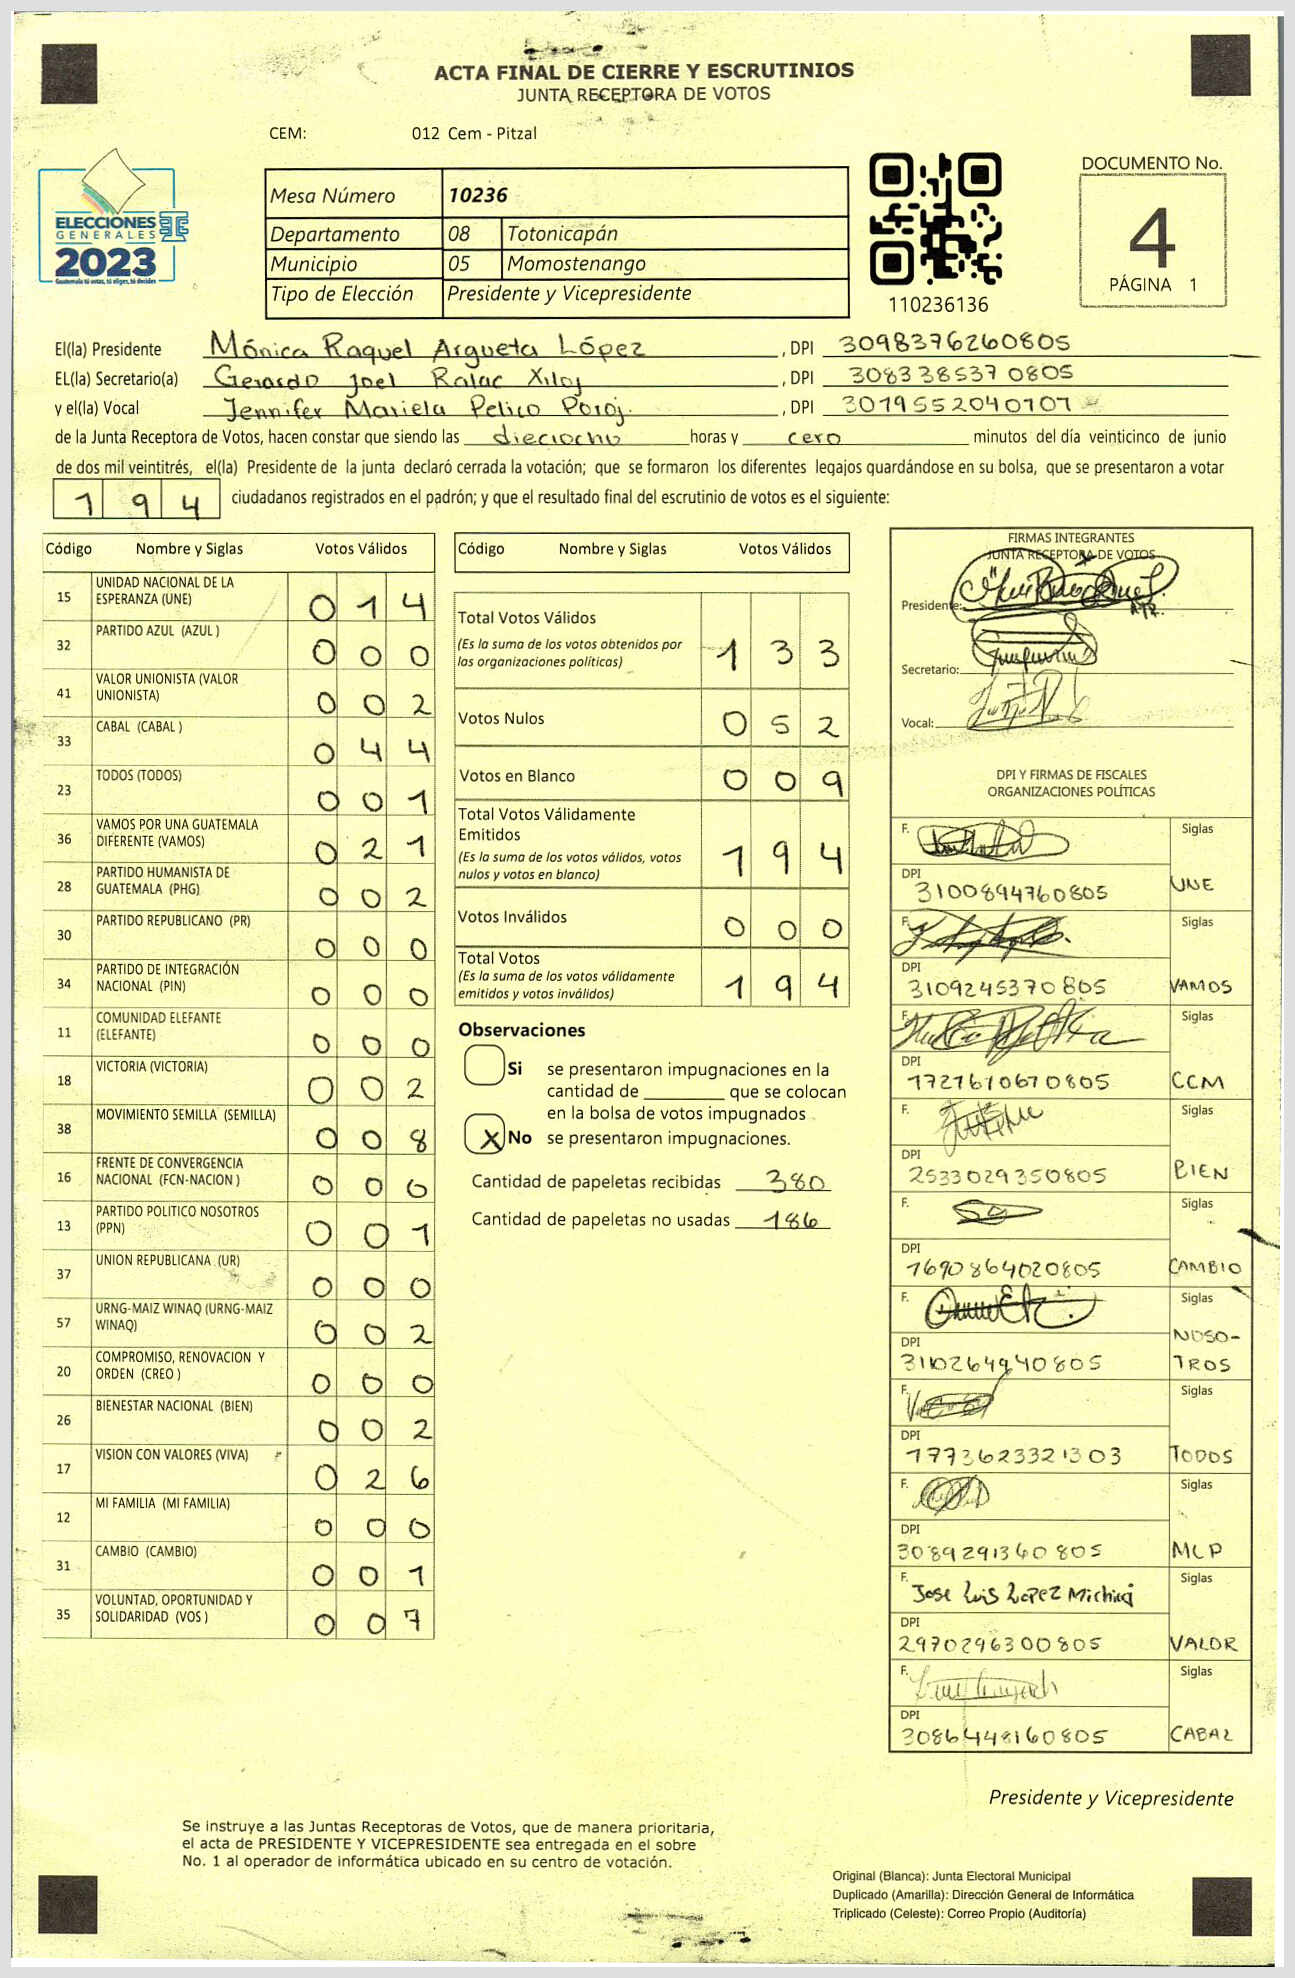 ACTA FINAL DE CIERRE Y ESCRUTINIOS
JUNTA RECEPTORA DE VOTOS
CEM: 012 Cem - Pitzal
ELECCIONES
GENERALES
2023
Guatemala tú votas, tú eliges, tú decides
Mesa Número 10236
Departamento 08 Totonicapán
Municipio 05 Momostenango
Tipo de Elección Presidente y Vicepresidente
110236136
DOCUMENTO No.
4
PÁGINA 1
El(la) Presidente Mónica Raquel Argueta López , DPI 3098376260805
EL(la) Secretario(a) Gerardo Joel Ralac Xiloj , DPI 3083385370805
y el(la) Vocal Jennifer Mariela Pelico Poroj. , DPI 3079552040707
de la Junta Receptora de Votos, hacen constar que siendo las dieciocho horas y cero minutos del día veinticinco de junio
de dos mil veintitrés, el(la) Presidente de la junta declaró cerrada la votación; que se formaron los diferentes legajos guardándose en su bolsa, que se presentaron a votar
194 ciudadanos registrados en el padrón; y que el resultado final del escrutinio de votos es el siguiente:
Código Nombre y Siglas Votos Válidos
15 UNIDAD NACIONAL DE LA ESPERANZA (UNE) 014
32 PARTIDO AZUL (AZUL ) 000
41 VALOR UNIONISTA (VALOR UNIONISTA) 002
33 CABAL (CABAL ) 044
23 TODOS (TODOS) 001
36 VAMOS POR UNA GUATEMALA DIFERENTE (VAMOS) 021
28 PARTIDO HUMANISTA DE GUATEMALA (PHG) 002
30 PARTIDO REPUBLICANO (PR) 000
34 PARTIDO DE INTEGRACIÓN NACIONAL (PIN) 000
11 COMUNIDAD ELEFANTE (ELEFANTE) 000
18 VICTORIA (VICTORIA) 002
38 MOVIMIENTO SEMILLA (SEMILLA) 008
16 FRENTE DE CONVERGENCIA NACIONAL (FCN-NACION ) 000
13 PARTIDO POLITICO NOSOTROS (PPN) 001
37 UNION REPUBLICANA (UR) 000
57 URNG-MAIZ WINAQ (URNG-MAIZ WINAQ) 002
20 COMPROMISO, RENOVACION Y ORDEN (CREO ) 000
26 BIENESTAR NACIONAL (BIEN) 002
17 VISION CON VALORES (VIVA) 026
12 MI FAMILIA (MI FAMILIA) 000
31 CAMBIO (CAMBIO) 001
35 VOLUNTAD, OPORTUNIDAD Y SOLIDARIDAD (VOS ) 007
Código Nombre y Siglas Votos Válidos
Total Votos Válidos
(Es la suma de los votos obtenidos por
las organizaciones políticas) 133
Votos Nulos 052
Votos en Blanco 009
Total Votos Válidamente
Emitidos
(Es la suma de los votos válidos, votos
nulos y votos en blanco) 194
Votos Inválidos 000
Total Votos
(Es la suma de los votos válidamente
emitidos y votos inválidos) 194
Observaciones
Si se presentaron impugnaciones en la
cantidad de ________ que se colocan
en la bolsa de votos impugnados
X No se presentaron impugnaciones.
Cantidad de papeletas recibidas 380
Cantidad de papeletas no usadas 186
FIRMAS INTEGRANTES
JUNTA RECEPTORA DE VOTOS
Presidente:
Secretario:
Vocal:
DPI Y FIRMAS DE FISCALES
ORGANIZACIONES POLÍTICAS
F. Siglas
DPI 3100894760805 UNE
F. Siglas
DPI 3109245370805 VAMOS
F. Siglas
DPI 1721610670805 CCM
F. Siglas
DPI 2533029350805 BIEN
F. Siglas
DPI 1690864020805 CAMBIO
F. Siglas
DPI 3110264940805 NOSO-
TROS
F. Siglas
DPI 1773623321303 TODOS
F. Siglas
DPI 3089291360805 MLP
F. Jose Luis Lopez Michicoj Siglas
DPI 2970296300805 VALOR
F. Siglas
DPI 3086448160805 CABAL
Presidente y Vicepresidente
Se instruye a las Juntas Receptoras de Votos, que de manera prioritaria,
el acta de PRESIDENTE Y VICEPRESIDENTE sea entregada en el sobre
No. 1 al operador de informática ubicado en su centro de votación.
Original (Blanca): Junta Electoral Municipal
Duplicado (Amarilla): Dirección General de Informática
Triplicado (Celeste): Correo Propio (Auditoría)